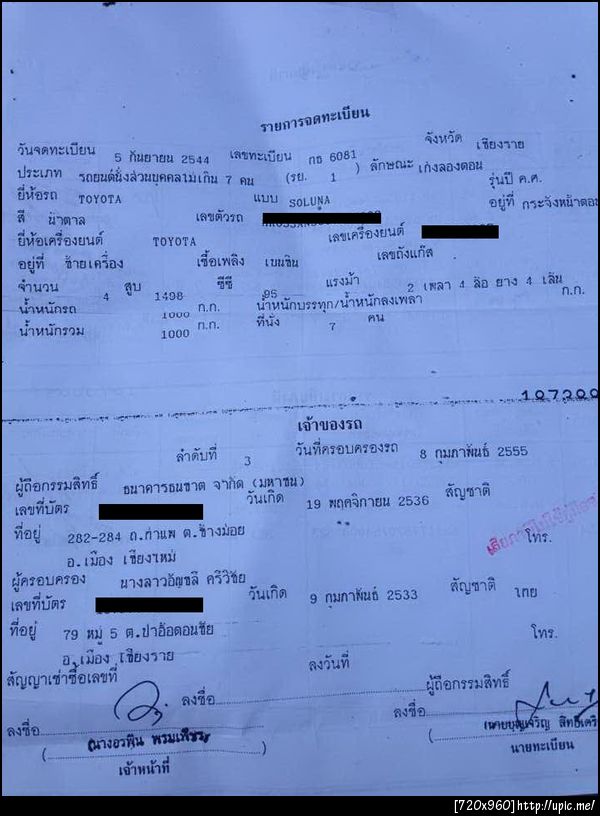 รายการจดทะเบียน
วันจดทะเบียน 5 กันยายน 2544 เลขทะเบียน กธ 6081 จังหวัด เชียงราย
ประเภท รถยนต์นั่งส่วนบุคคลไม่เกิน 7 คน (รย. 1 ) ลักษณะ เก๋งสองตอน
ยี่ห้อรถ TOYOTA แบบ SOLUNA รุ่นปี ค.ศ.
สี น้ำตาล เลขตัวรถ อยู่ที่ กระจังหน้าตอน
ยี่ห้อเครื่องยนต์ TOYOTA เลขเครื่องยนต์
อยู่ที่ ซ้ายเครื่อง เชื้อเพลิง เบนซิน เลขถังแก๊ส
จำนวน 4 สูบ 1498 ซีซี 95 แรงม้า 2 เพลา 4 ล้อ ยาง 4 เส้น
น้ำหนักรถ 1000 ก.ก. น้ำหนักบรรทุก/น้ำหนักลงเพลา ก.ก.
น้ำหนักรวม 1000 ก.ก. ที่นั่ง 7 คน
107200
เจ้าของรถ
ลำดับที่ 3 วันที่ครอบครองรถ 8 กุมภาพันธ์ 2555
ผู้ถือกรรมสิทธิ์ ธนาคารธนชาต จำกัด (มหาชน)
เลขที่บัตร วันเกิด 19 พฤศจิกายน 2536 สัญชาติ
ที่อยู่ 282-284 ถ.ท่าแพ ต.ช้างม่อย โทร.
อ.เมือง เชียงใหม่
ผู้ครอบครอง นางสาวอัญชลี ศรีวิชัย
เลขที่บัตร วันเกิด 9 กุมภาพันธ์ 2533 สัญชาติ ไทย
ที่อยู่ 79 หมู่ 5 ต.ป่าอ้อดอนชัย โทร.
อ.เมือง เชียงราย
สัญญาเช่าซื้อเลขที่ ลงวันที่
ลงชื่อ ผู้ถือกรรมสิทธิ์
ลงชื่อ ลงชื่อ
(นางอรพิน พรมเพ็ชร)
เจ้าหน้าที่ นายทะเบียน
[720x960]http://upic.me/